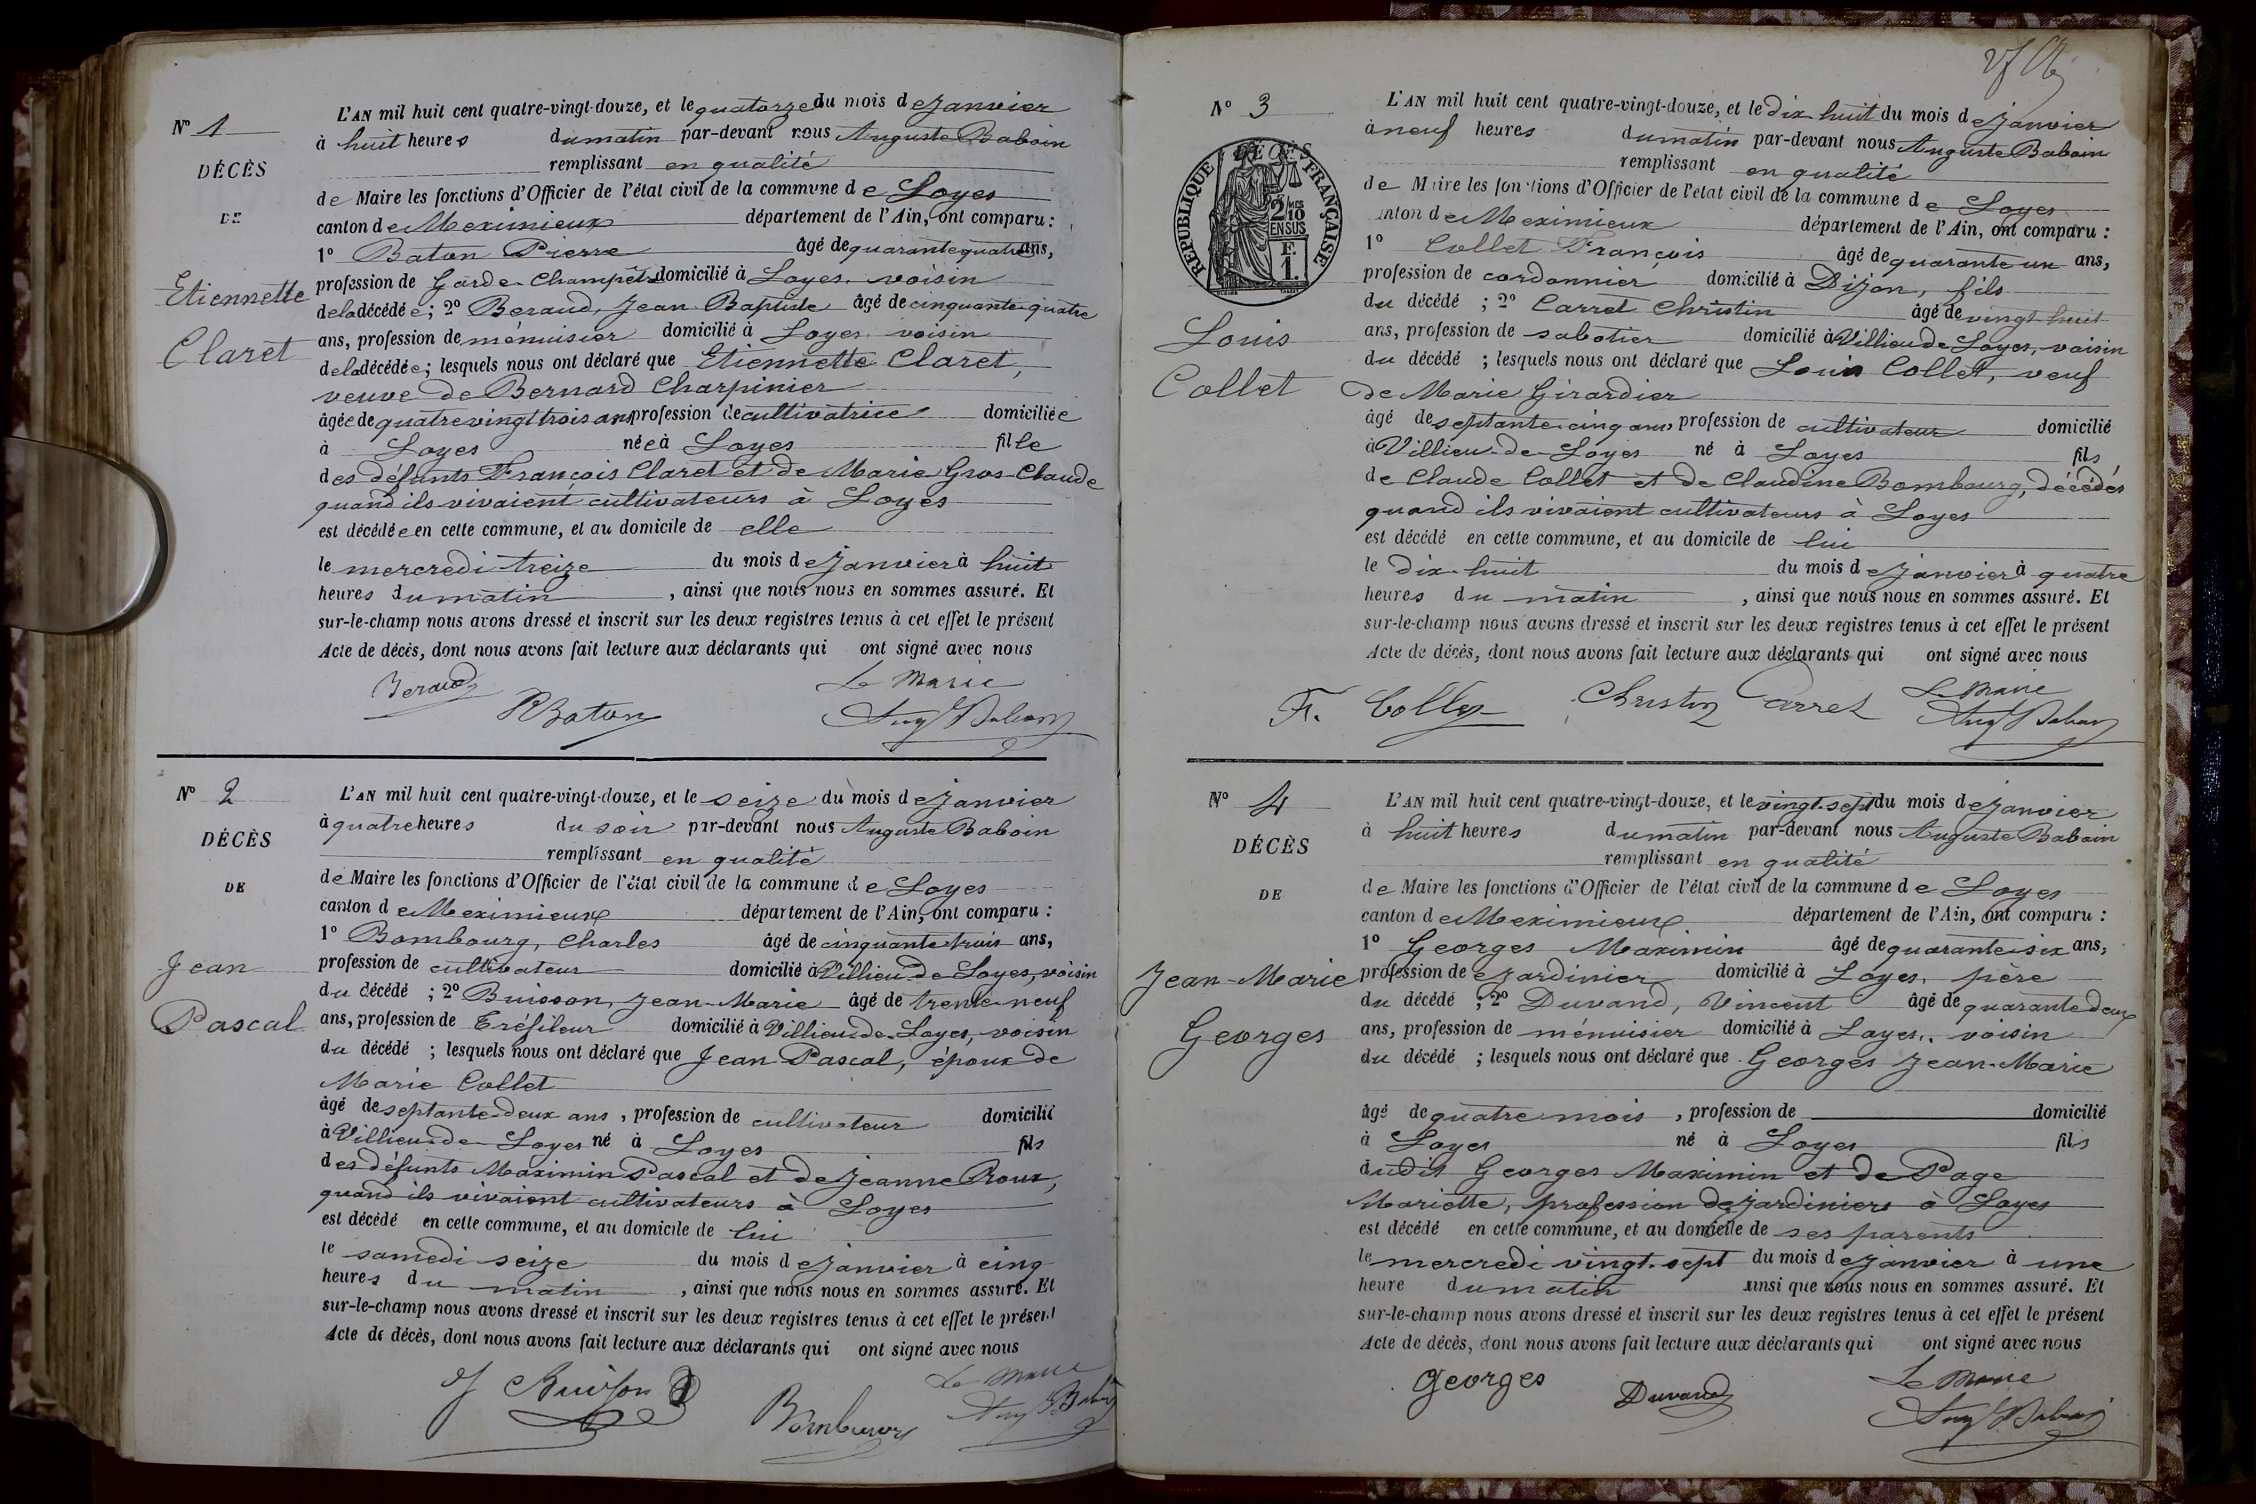 N° 1
DÉCÈS
DE
Etiennette
Claret
L'AN mil huit cent quatre-vingt-douze, et le quatorze du mois de Janvier
à huit heures du matin par-devant nous Auguste Baboin
remplissant en qualité
de Maire les fonctions d'Officier de l'état civil de la commune de Loyes
canton de Meximieux département de l'Ain, ont comparu :
1° Baton Pierre âgé de quarante quatre ans,
profession de Garde Champêtre domicilié à Loyes, voisin
de la décédée ; 2° Beraud, Jean Baptiste âgé de cinquante quatre
ans, profession de ménuisier domicilié à Loyes, voisin
de la décédée ; lesquels nous ont déclaré que Etiennette Claret,
veuve de Bernard Charpinier
âgée de quatre vingt trois ans profession de cultivatrice domiciliée
à Loyes née à Loyes fille
des défunts François Claret et de Marie Gros-Claude
quand ils vivaient cultivateurs à Loyes
est décédée en cette commune, et au domicile de elle
le mercredi treize du mois de Janvier à huit
heures du matin , ainsi que nous nous en sommes assuré. Et
sur-le-champ nous avons dressé et inscrit sur les deux registres tenus à cet effet le présent
Acte de décès, dont nous avons fait lecture aux déclarants qui ont signé avec nous
Beraud
PBaton
Le Maire
Aug Baboin
N° 2
DÉCÈS
DE
Jean
Pascal
L'AN mil huit cent quatre-vingt-douze, et le seize du mois de Janvier
à quatre heures du soir par-devant nous Auguste Baboin
remplissant en qualité
de Maire les fonctions d'Officier de l'état civil de la commune de Loyes
canton de Meximieux département de l'Ain, ont comparu :
1° Bombourg, Charles âgé de cinquante trois ans,
profession de cultivateur domicilié à Villieu-de-Loyes, voisin
du décédé ; 2° Buisson, Jean-Marie âgé de trente-neuf
ans, profession de Tréfileur domicilié à Villieu-de-Loyes, voisin
du décédé ; lesquels nous ont déclaré que Jean Pascal, époux de
Marie Collet
âgé de septante-deux ans , profession de cultivateur domicilié
à Villieu-de-Loyes né à Loyes fils
des défunts Maximin Pascal et de Jeanne Roux,
quand ils vivaient cultivateurs à Loyes
est décédé en cette commune, et au domicile de lui
le samedi seize du mois de Janvier à cinq
heures du matin , ainsi que nous nous en sommes assuré. Et
sur-le-champ nous avons dressé et inscrit sur les deux registres tenus à cet effet le présent
Acte de décès, dont nous avons fait lecture aux déclarants qui ont signé avec nous
J Buisson
Bombourg
Le Maire
Aug Baboin
N° 3
DÉCÈS
RÉPUBLIQUE FRANÇAISE
2 MES
10
EN SUS
F.
1.
Louis
Collet
L'AN mil huit cent quatre-vingt-douze, et le dix-huit du mois de Janvier
à neuf heures du matin par-devant nous Auguste Baboin
remplissant en qualité
de Maire les fonctions d'Officier de l'état civil de la commune de Loyes
canton de Meximieux département de l'Ain, ont comparu :
1° Collet François âgé de quarante un ans,
profession de cordonnier domicilié à Dijon, fils
du décédé ; 2° Carret Christin âgé de vingt huit
ans, profession de sabotier domicilié à Villieu de Loyes, voisin
du décédé ; lesquels nous ont déclaré que Louis Collet, veuf
de Marie Girardier
âgé de septante-cinq ans, profession de cultivateur domicilié
à Villieu-de-Loyes né à Loyes fils
de Claude Collet et de Claudine Bombourg, décédés
quand ils vivaient cultivateurs à Loyes
est décédé en cette commune, et au domicile de lui
le dix-huit du mois de Janvier à quatre
heures du matin , ainsi que nous nous en sommes assuré. Et
sur-le-champ nous avons dressé et inscrit sur les deux registres tenus à cet effet le présent
Acte de décès, dont nous avons fait lecture aux déclarants qui ont signé avec nous
F. Collet
Christin Carret
Le Maire
Aug Baboin
N° 4
DÉCÈS
DE
Jean-Marie
Georges
L'AN mil huit cent quatre-vingt-douze, et le vingt-sept du mois de Janvier
à huit heures du matin par-devant nous Auguste Baboin
remplissant en qualité
de Maire les fonctions d'Officier de l'état civil de la commune de Loyes
canton de Meximieux département de l'Ain, ont comparu :
1° Georges Maximin âgé de quarante-six ans,
profession de Jardinier domicilié à Loyes, père
du décédé ; 2° Duvand, Vincent âgé de quarante deux
ans, profession de ménuisier domicilié à Loyes, voisin
du décédé ; lesquels nous ont déclaré que Georges Jean-Marie
âgé de quatre mois , profession de domicilié
à Loyes né à Loyes fils
dudit Georges Maximin et de Page
Mariette, profession de Jardiniers à Loyes
est décédé en cette commune, et au domicile de ses parents
le mercredi vingt-sept du mois de Janvier à une
heure du matin ainsi que nous nous en sommes assuré. Et
sur-le-champ nous avons dressé et inscrit sur les deux registres tenus à cet effet le présent
Acte de décès, dont nous avons fait lecture aux déclarants qui ont signé avec nous
Georges
Duvand
Le Maire
Aug Baboin